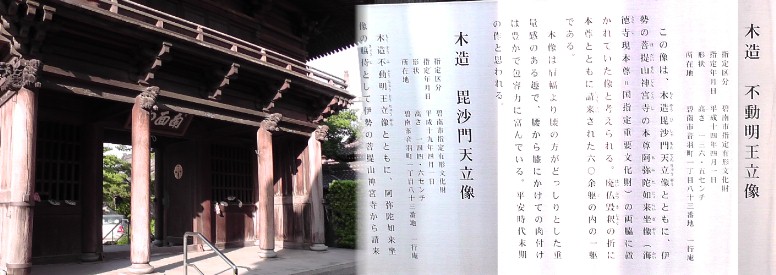 木造　不動明王立像
指定区分　碧南市指定有形文化財
指定年月日　平成十四年四月一日
形状　高さ一三六・五センチ
所在地　碧南市音羽町一丁目八十三番地　一行庵
この像は、木造毘沙門天立像とともに、伊
勢の菩提山神宮寺の本尊阿弥陀如来坐像（海
徳寺現本尊＝国指定重要文化財）の両脇に置
かれていた像と考えられる。廃仏毀釈の折に
本尊とともに請来された六〇余躯の内の一躯
である。
本像は肩幅より腰の方がどっしりとした重
量感のある趣で、腰から膝にかけての肉付け
は豊かで包容力に富んでいる。平安時代末期
の作と思われる。
木造　毘沙門天立像
指定区分　碧南市指定有形文化財
指定年月日　平成十九年四月一日
形状　高さ一四四・六センチ
所在地　碧南市音羽町一丁目八十三番地　一行庵
木造不動明王立像とともに、阿弥陀如来坐
像の脇侍として伊勢の菩提山神宮寺から請来